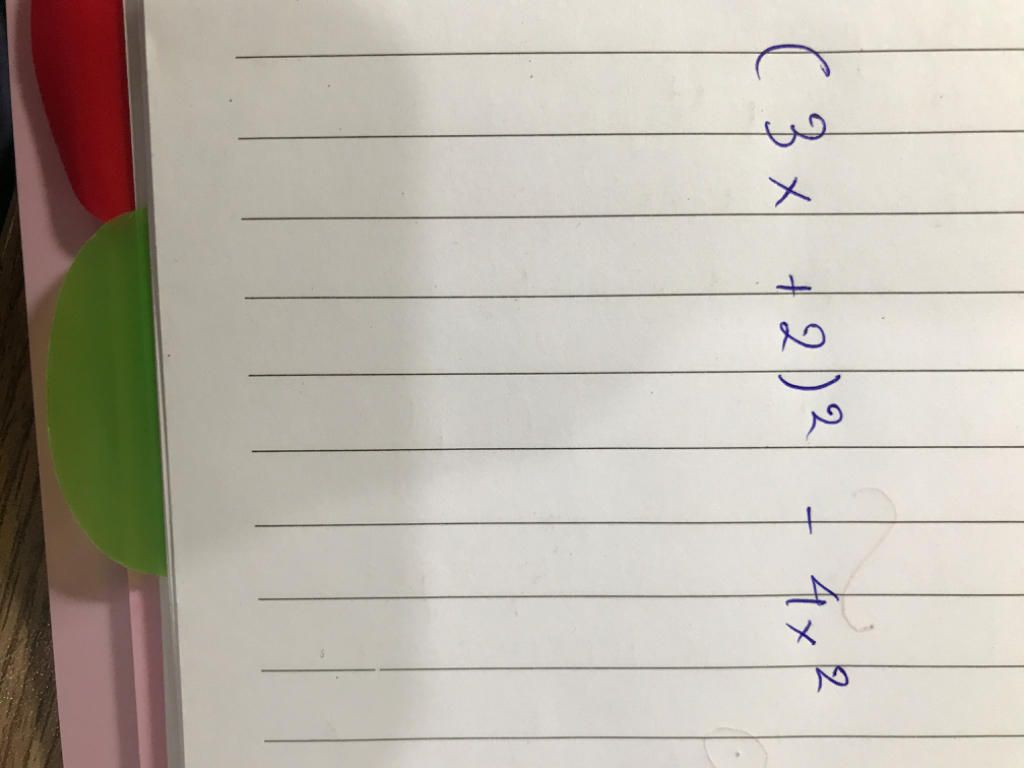 (3x + 2)² - 4x²